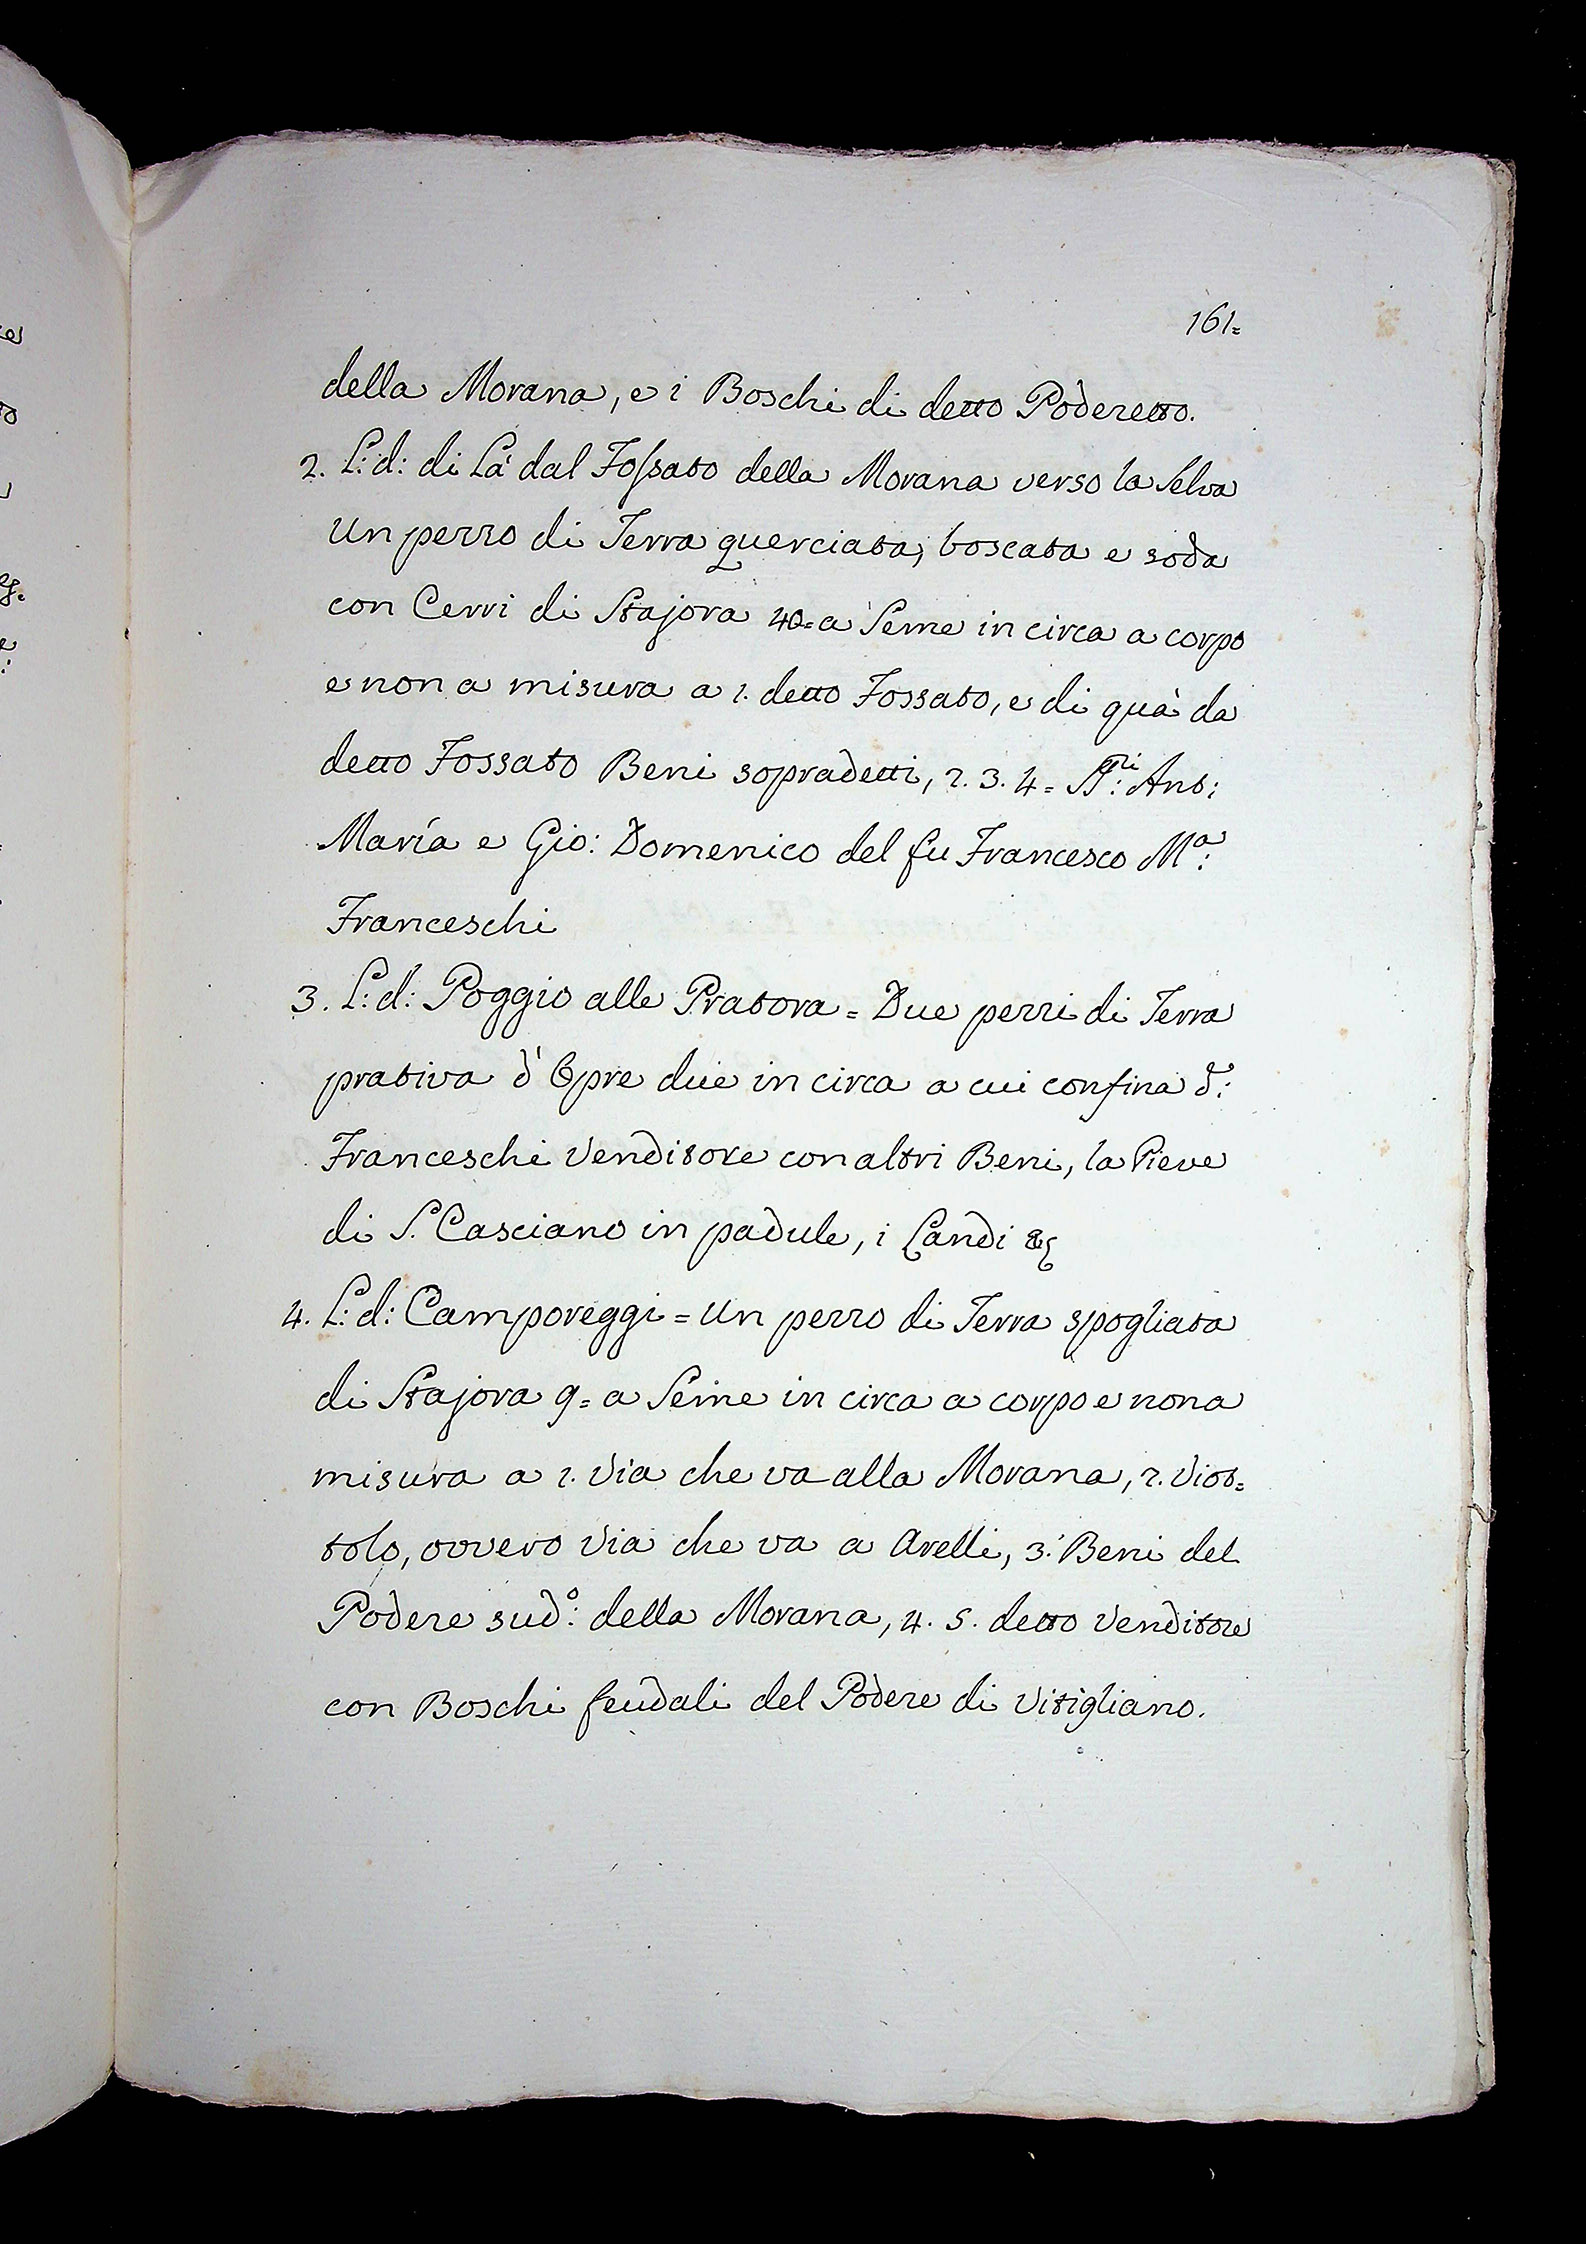 161=
della Morana, e i Boschi di detto Poderetto.
2. L: d: di Là dal Fossato della Morana verso la Selva
Un pezzo di Terra querciata, boscata e soda
con Cerri di Stajora 40= a Seme in circa a corpo
e non a misura a 1. detto Fossato, e di quà da
detto Fossato Beni sopradetti, 2. 3. 4= SS:ri Ant:
María e Gio: Domenico del fu Francesco Ma:
Franceschi
3. L: d: Poggio alle Pratora = Due pezzi di Terra
prativa d' Opre due in circa a cui confina d:
Franceschi Venditore con altri Beni, la Pieve
di S. Casciano in padule, i Landi &c
4. L: d: Camporeggi = Un pezzo di Terra spogliata
di Stajora 9= a Seme in circa a corpo e non a
misura a 1. Via che va alla Morana, 2. Viot=
tolo, ovvero Via che va a Arelli, 3. Beni del
Podere sudo: della Morana, 4. 5. detto Venditore
con Boschi feudali del Podere di Vitigliano.